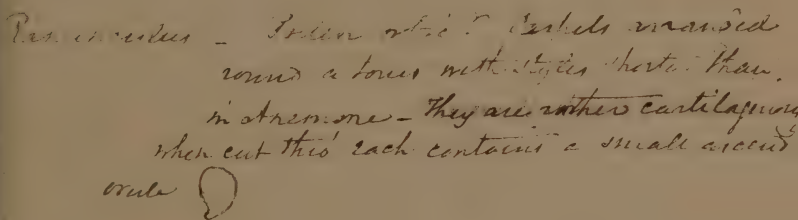 Ranunculus - Carpels arranged
round a torus with styles shorter than
in Anemone - They are rather cartilaginous
when cut thro' each contains a small ascend
ovule